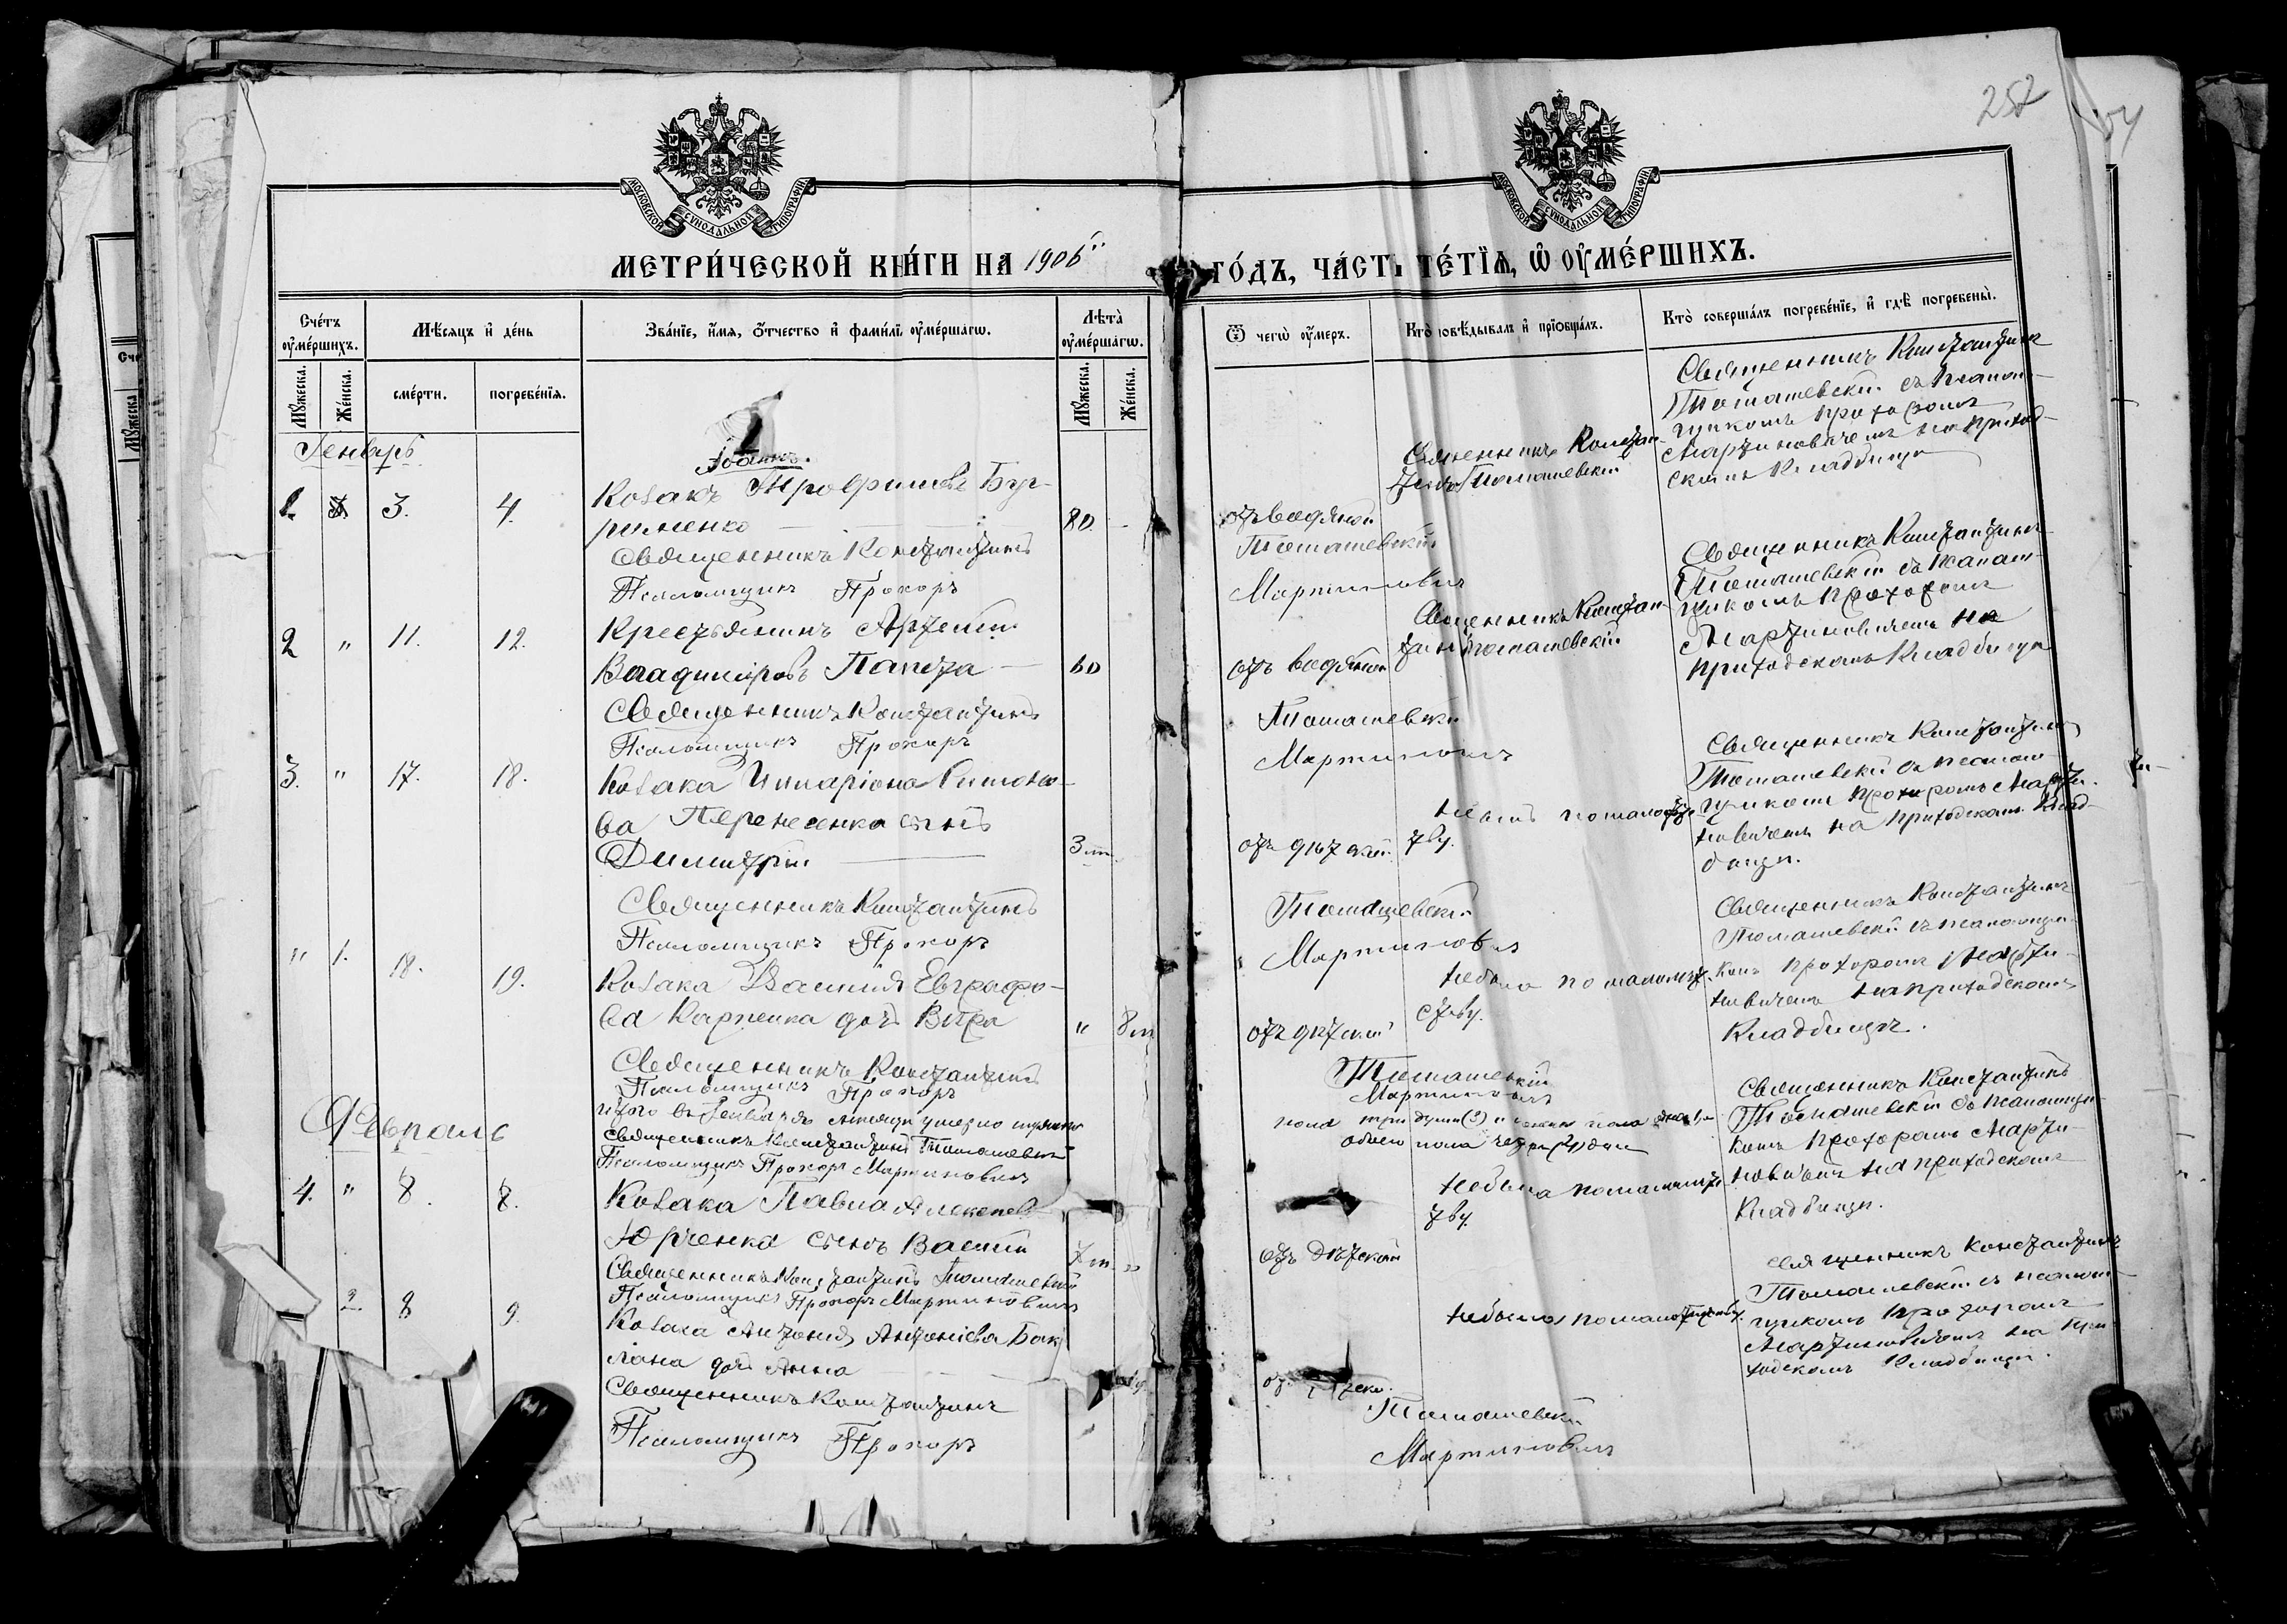 252
МОСКОВСКОЙ СѴНОДАЛЬНОЙ ТИПОГРАФІИ
МОСКОВСКОЙ СѴНОДАЛЬНОЙ ТИПОГРАФІИ
МЕТРИ́ЧЕСКОЙ КНИ́ГИ НА 1906 ГО́ДЪ, ЧА́СТЬ ТРЕ́ТЇѦ, Ѡ ОУ҆МЕ́РШИХЪ.
Сче́тъ оу҆ме́ршихъ.
Мꙋ́жеска.
Же́нска.
Мѣ́сяцъ и҆ де́нь
сме́рти.
погребе́нїѧ.
Зва́нїе, и҆́мѧ, ѻ҆́тчество и҆ фами́лїѧ оу҆ме́ршагѡ.
Лѣ́та оу҆ме́ршагѡ.
Мꙋ́жеска.
Же́нска.
Ѿ чегѡ̀ оу҆́меръ.
Кто̀ и҆сповѣ́дывалъ и҆ прїѡбща́лъ.
Кто̀ соверша́лъ погребе́нїе, и҆ гдѣ̀ погребены̀.
Генварь
1. 3. 4.
Козакъ Трофимовъ Бур-
рименко 80
отъ водяной
Священникъ Констан-
тинъ Томашевскій
Священникъ Константинъ
Томашевскій съ псалом-
щикомъ Прохоромъ
Мартиновичемъ на приход-
скомъ кладбищѣ
Священникъ Константинъ Томашевскій
Псаломщикъ Прохоръ Мартиновичъ
2 " 11. 12.
Крестьянинъ Артемій
Владиміровъ Папета 60
отъ водяной
Священникъ Констан-
тинъ Томашевскій
Священникъ Константинъ
Томашевскій съ псалом-
щикомъ Прохоромъ
Мартиновичемъ на
приходскомъ кладбищѣ
Священникъ Константинъ Томашевскій
Псаломщикъ Прохоръ Мартиновичъ
3. " 17. 18.
Козака Илларіона Симоно-
ва сынъ
Димитрій 3 м.
отъ дѣтской
Священникъ Константинъ
Томашевскій съ псалом-
щикомъ Прохоромъ Марти-
новичемъ на приходскомъ клад-
бищѣ.
Священникъ Константинъ Томашевскій
Псаломщикъ Прохоръ Мартиновичъ
" 1. 18. 19.
Козака Василія Евграфо-
ва Карпенка дочь Вѣра " 8 м
отъ дѣтской
Священникъ Константинъ
Томашевскій съ псаломщи-
комъ Прохоромъ Марти-
новичемъ на приходскомъ
кладбищѣ.
Священникъ Константинъ Томашевскій
Псаломщикъ Прохоръ Мартиновичъ
Итого въ Генварѣ мѣсяцѣ умерло мужеска пола три души (3) и женска пола одна 1, а
обоего пола четыре (4) души
Священникъ Константинъ Томашевскій
Псаломщикъ Прохоръ Мартиновичъ
Февраль
4. " 8. 8.
Козака Павла Алексѣев
Юрченка сынъ Василій
отъ дѣтской
Священникъ Константинъ
Томашевскій съ псаломщи-
комъ Прохоромъ Марти-
новичемъ на приходскомъ
кладбищѣ.
Священникъ Константинъ Томашевскій
Псаломщикъ Прохоръ Мартиновичъ
2. 8 9.
Козака Антонія Антоніева Бак
лана дочь Анна
Священникъ Константинъ
Томашевскій съ псалом-
щикомъ Прохоромъ
Мартиновичемъ на при-
ходскомъ кладбищѣ.
Священникъ Константинъ Томашевскій
Псаломщикъ Прохоръ Мартиновичъ